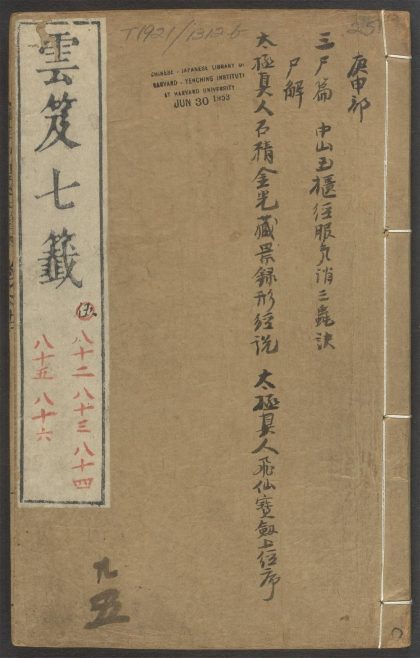 25
T1921/1312.b
CHINESE - JAPANESE LIBRARY OF
HARVARD - YENCHING INSTITUTE
AT HARVARD UNIVERSITY
JUN 30 1953
庚申部
三尸篇 中山玉櫃經服氣消三蟲決
尸解
太極真人石精金光藏景録形經說 太極真人飛仙寶劍上經序
雲笈七籤
伍
八十二 八十三 八十四
八十五 八十六
九